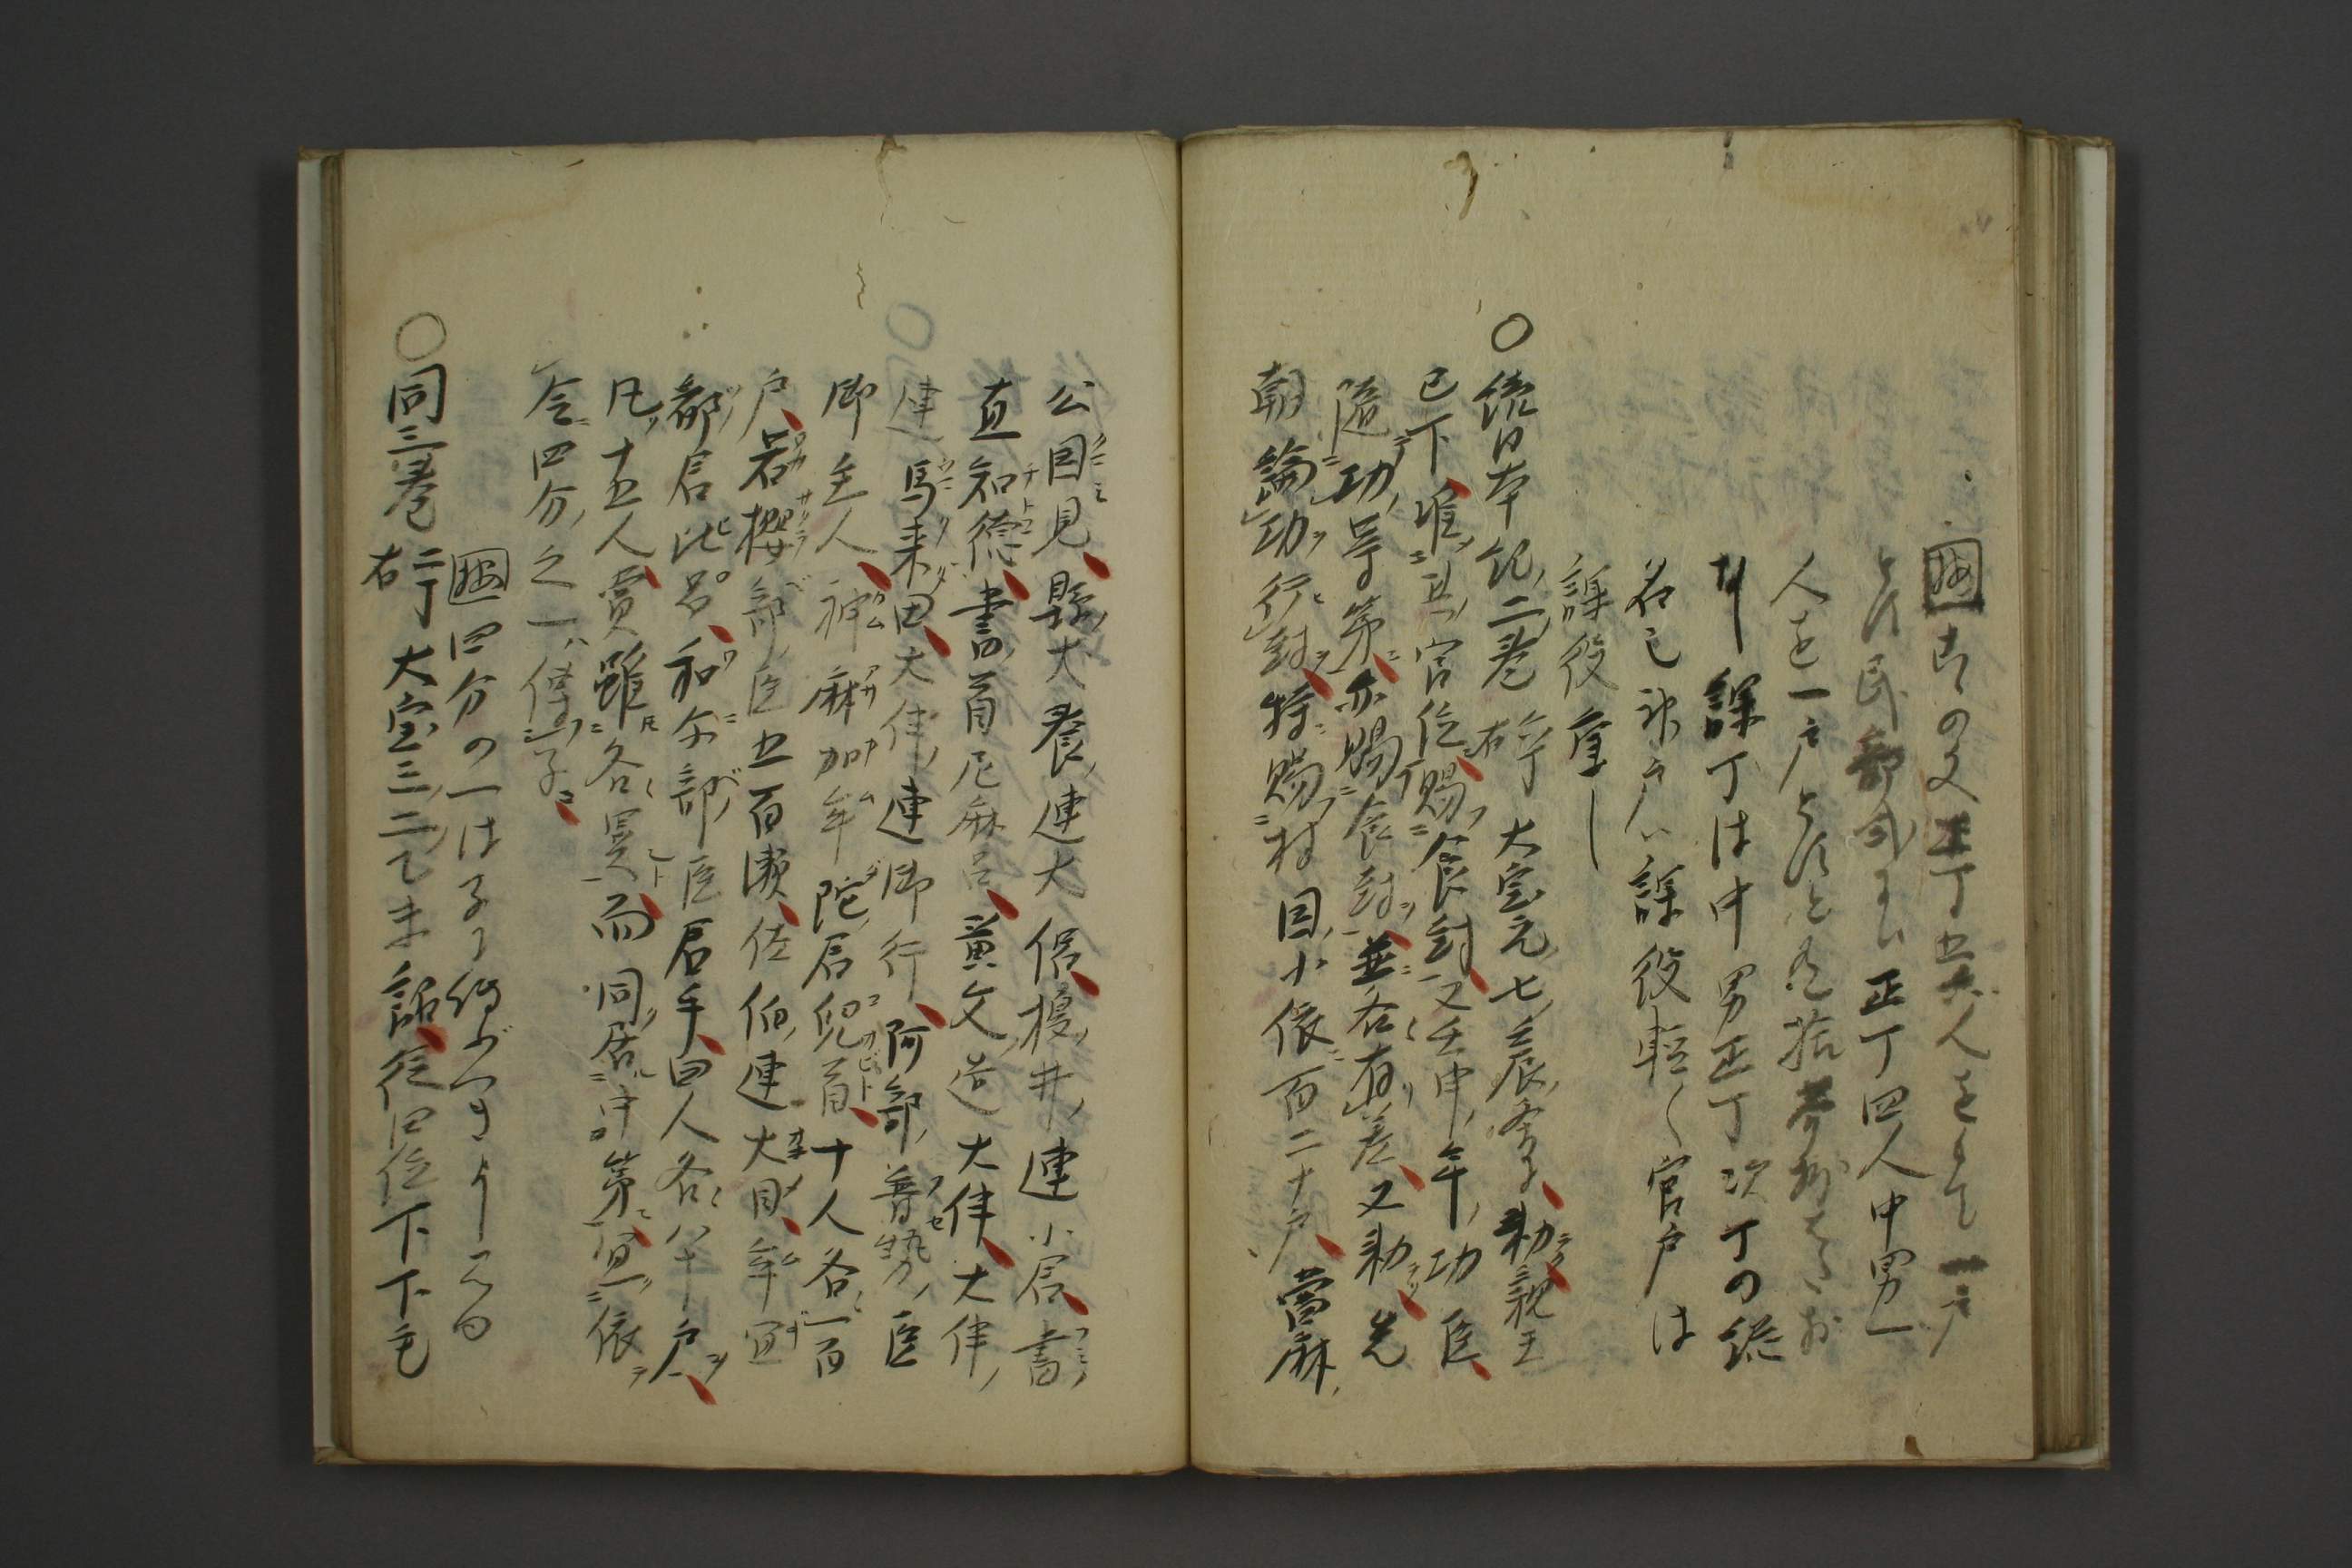 古の文正丁五六人をもて一戸
とす民部式には正丁四人中男一
人を一戸とす
課丁は中男正丁次丁の総
名也神戸は課役軽く官戸は
課役重し
○続日本紀二巻 六丁右 大宝元七壬辰条に勅親王
已下准其官位賜食封又壬申年功臣
随功等第亦賜食封並各有差又勅先
朝論功行封時賜村国小依百二十戸当麻
公国見県犬養連大侶榎井連小君書
直知徳書首尼麻呂黄文造大伴大伴
連馬来田大伴連御行阿部普勢臣
御主人神麻加牟陀君児首十人各一百
戸若桜部臣五百瀬佐伯連大目牟宜
都君比呂和尓部臣君手四人各八十戸
凡十五人賞雖各異而同居中第宜依
令四分之一伝子
四分の一は子に伝ふべきよし
○同三巻 二丁右 大宝三二乙未詔従四位下下毛